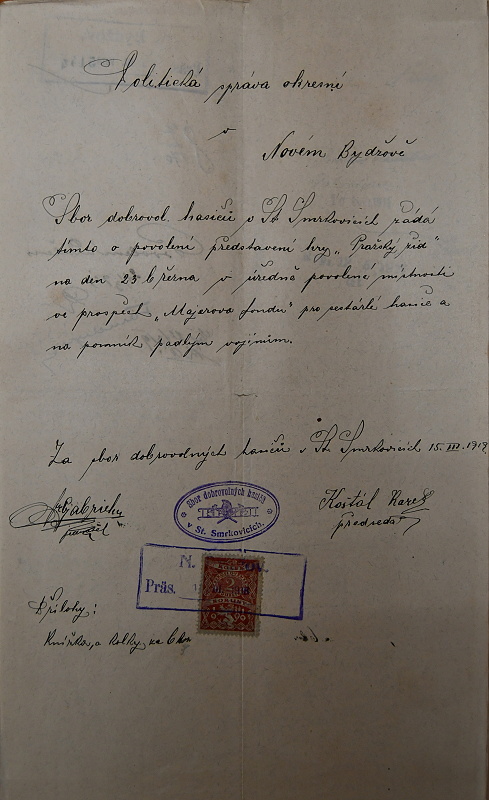 Politická správa okresní
v
Novém Bydžově
Sbor dobrovol. hasičů v St. Smrkovicích žádá
tímto o povolení představení hry „Pražský žid"
na den 23 března v úředně povolené místnosti
ve prospěch „Majerova fondu" pro sestárlé hasiče a
na pomník padlým vojínům.
Za sbor dobrovolných hasičů v St. Smrkovicích 15. III. 1919
Sbor dobrovolných hasičů
v St. Smrkovicích.
Košťál Karel
předseda
N.
Präs.
Přílohy:
Knížka, a kolky za 6 kor